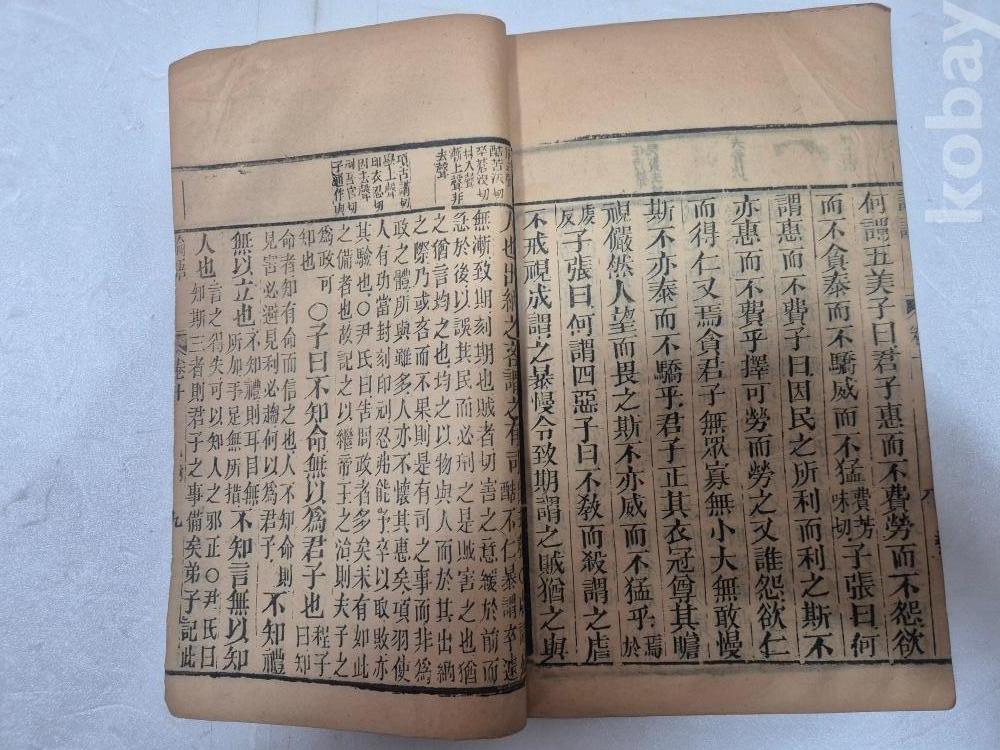 何謂五美子曰君子惠而不費勞而不怨欲
而不貪泰而不驕威而不猛費芳味切子張曰何
謂惠而不費子曰因民之所利而利之斯不
亦惠而不費乎擇可勞而勞之又誰怨欲仁
而得仁又焉貪君子無眾寡無小大無敢慢
斯不亦泰而不驕乎君子正其衣冠尊其瞻
視儼然人望而畏之斯不亦威而不猛乎焉於
虔反子張曰何謂四惡子曰不教而殺謂之虐
不戒視成謂之暴慢令致期謂之賊猶之與
酷苦沃切
卒蒼沒切
漸上聲非
去聲
項古講切
學上聲
印衣忍切
因去聲
子通作與
人也出納之吝謂之有司
酷不仁暴謂卒遽
無漸致期刻期也賊者切害之意緩於前而
急於後以誤其民而必刑之是賊害之也猶
之猶言均之也均之以物與人而於其出納
之際乃或吝而不果則是有司之事而非為
政之體所與雖多人亦不懷其惠矣項羽使
人有功當封刻印刓忍弗能予卒以取敗亦
其驗也○尹氏曰告問政者多矣未有如此
之備者也故記之以繼帝王之治則夫子之
為政可知也○子曰不知命無以為君子也程子曰知
命者知有命而信之也人不知命則
見害必避見利必趨何以為君子不知禮
無以立也不知禮則耳目無所加手足無所措不知言無以知
人也言之得失可以知人之邪正○尹氏曰
知斯三者則君子之事備矣弟子記此
卷十
九
kobay